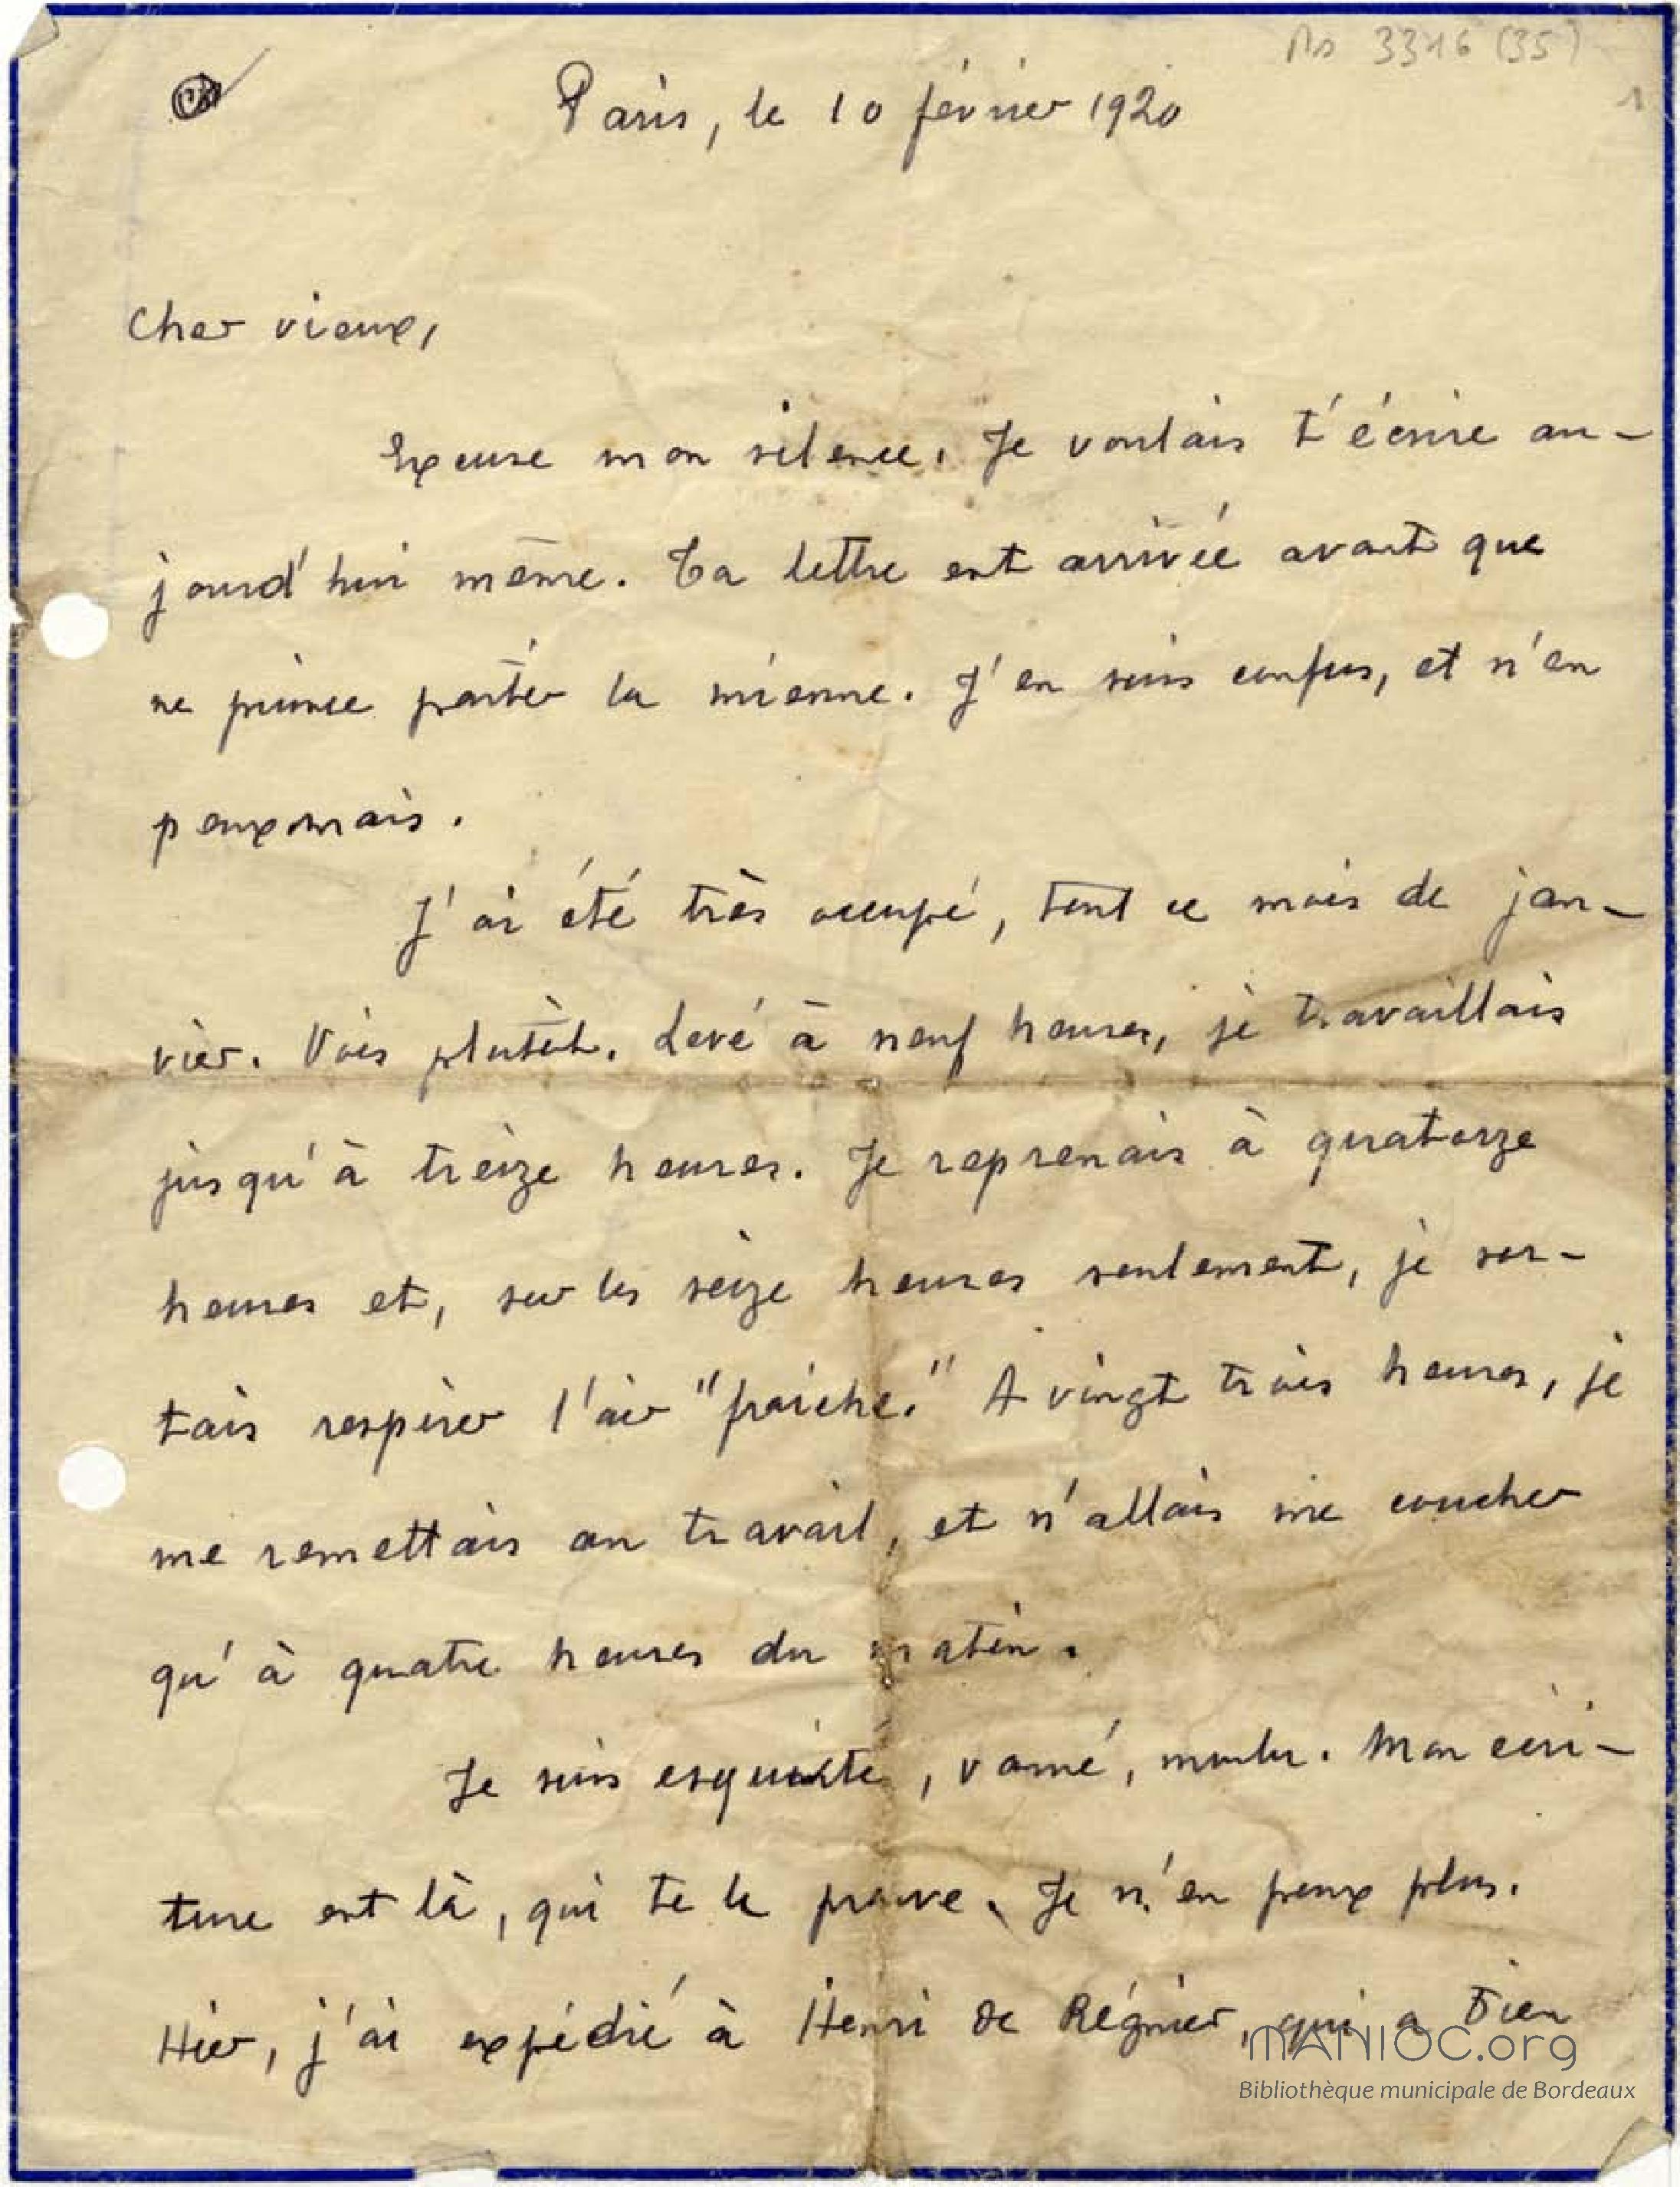 Ms 3316 (35)
1
Paris, le 10 février 1920
Cher vieux,
Excuse mon silence. Je voulais t'écrire au-
jourd'hui même. Ta lettre est arrivée avant que
ne puisse partir la mienne. J'en suis confus, et n'en
peux mais.
J'ai été très occupé, tout ce mois de jan-
vier. Vois plutôt. Levé à neuf heures, je travaillais
jusqu'à treize heures. Je reprenais à quatorze
heures et, sur les seize heures seulement, je sor-
tais respirer l'air "fraîche." A vingt trois heures, je
me remettais au travail, et n'allais me coucher
qu'à quatre heures du matin.
Je suis esquinté, vanné, moulu. Mon écri-
ture est là, qui te le prouve. Je n'en peux plus.
Hier, j'ai expédié à Henri de Régnier, qui a bien
MANIOC.org
Bibliothèque municipale de Bordeaux